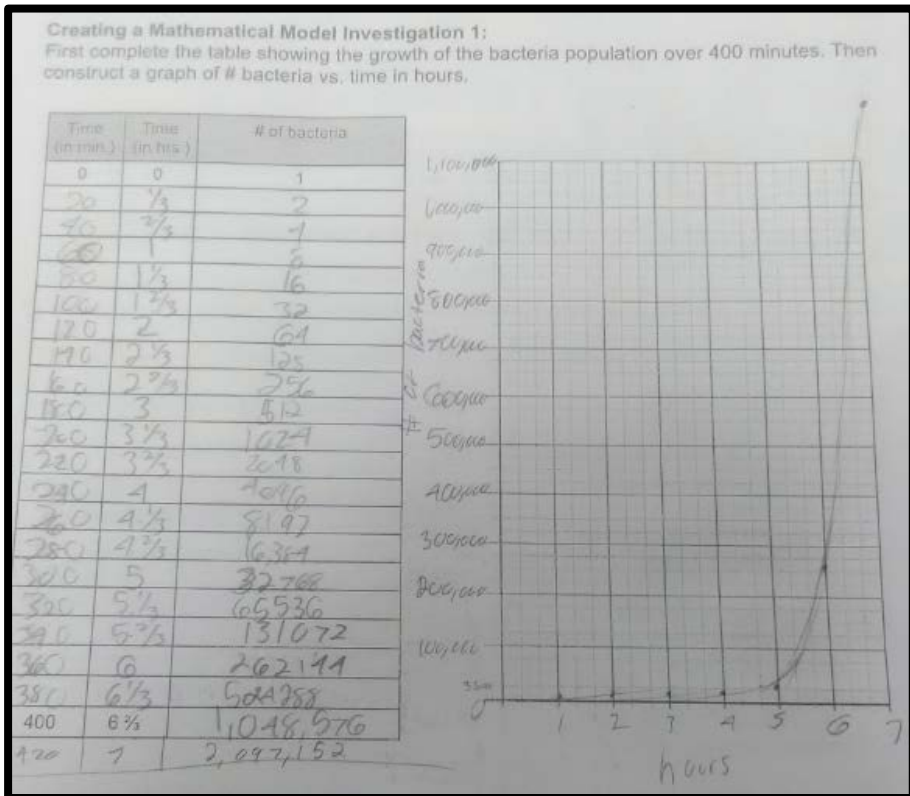 Creating a Mathematical Model Investigation 1:
First complete the table showing the growth of the bacteria population over 400 minutes. Then
construct a graph of # bacteria vs. time in hours.
Time (in min.) Time (in hrs.) # of bacteria
0 0 1
20 1/3 2
40 2/3 4
60 1 8
80 1 1/3 16
100 1 2/3 32
120 2 64
140 2 1/3 128
160 2 2/3 256
180 3 512
200 3 1/3 1024
220 3 2/3 2048
240 4 4096
260 4 1/3 8192
280 4 2/3 16,384
300 5 32768
320 5 1/3 65536
340 5 2/3 131072
360 6 262144
380 6 1/3 524288
400 6 2/3 1,048,576
420 7 2,097,152
# of bacteria
1,100,000
1,000,000
900,000
800,000
700,000
600,000
500,000
400,000
300,000
200,000
100,000
0
1 2 3 4 5 6 7
hours